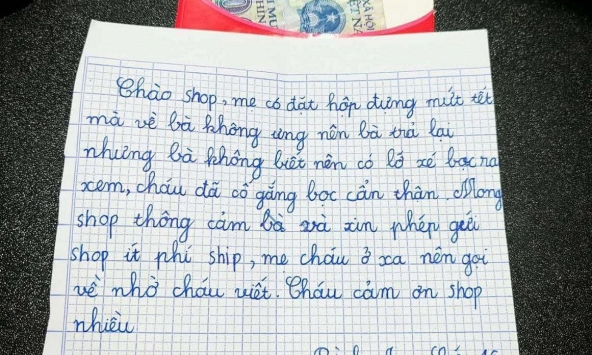 XÃ HỘI
VIỆT NA
Chào shop, mẹ có đặt hộp đựng mứt tết
mà về bà không ưng nên bà trả lại
nhưng bà không biết nên có lỡ xé bọc ra
xem, cháu đã cố gắng bọc cẩn thận. Mong
shop thông cảm bà và xin phép gửi
shop ít phí ship, mẹ cháu ở xa nên gọi
về nhờ cháu viết. Cháu cảm ơn shop
nhiều